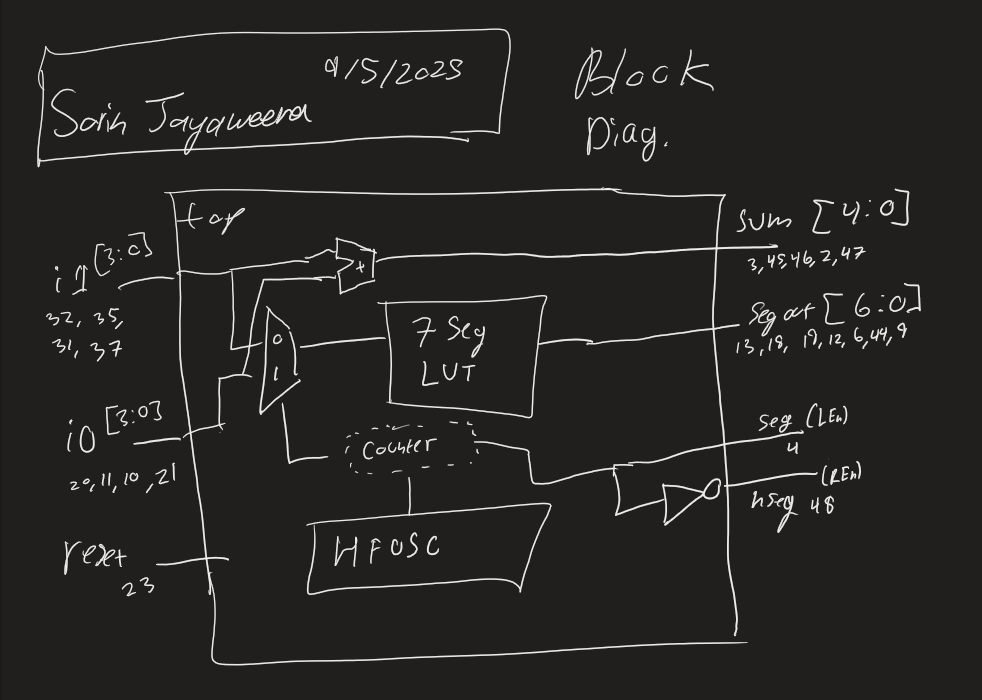 9/5/2025
Sorin Jayaweera
Block
Diag.
top
i1 [3:0]
32, 35,
31, 37
i0 [3:0]
20, 11, 10, 21
reset
23
+
0
1
7 Seg
LUT
Counter
HFOSC
sum [4:0]
3, 45, 46, 2, 47
Seg out [6:0]
13, 18, 19, 12, 6, 44, 9
seg (LEn)
4
(REn)
nseg 48